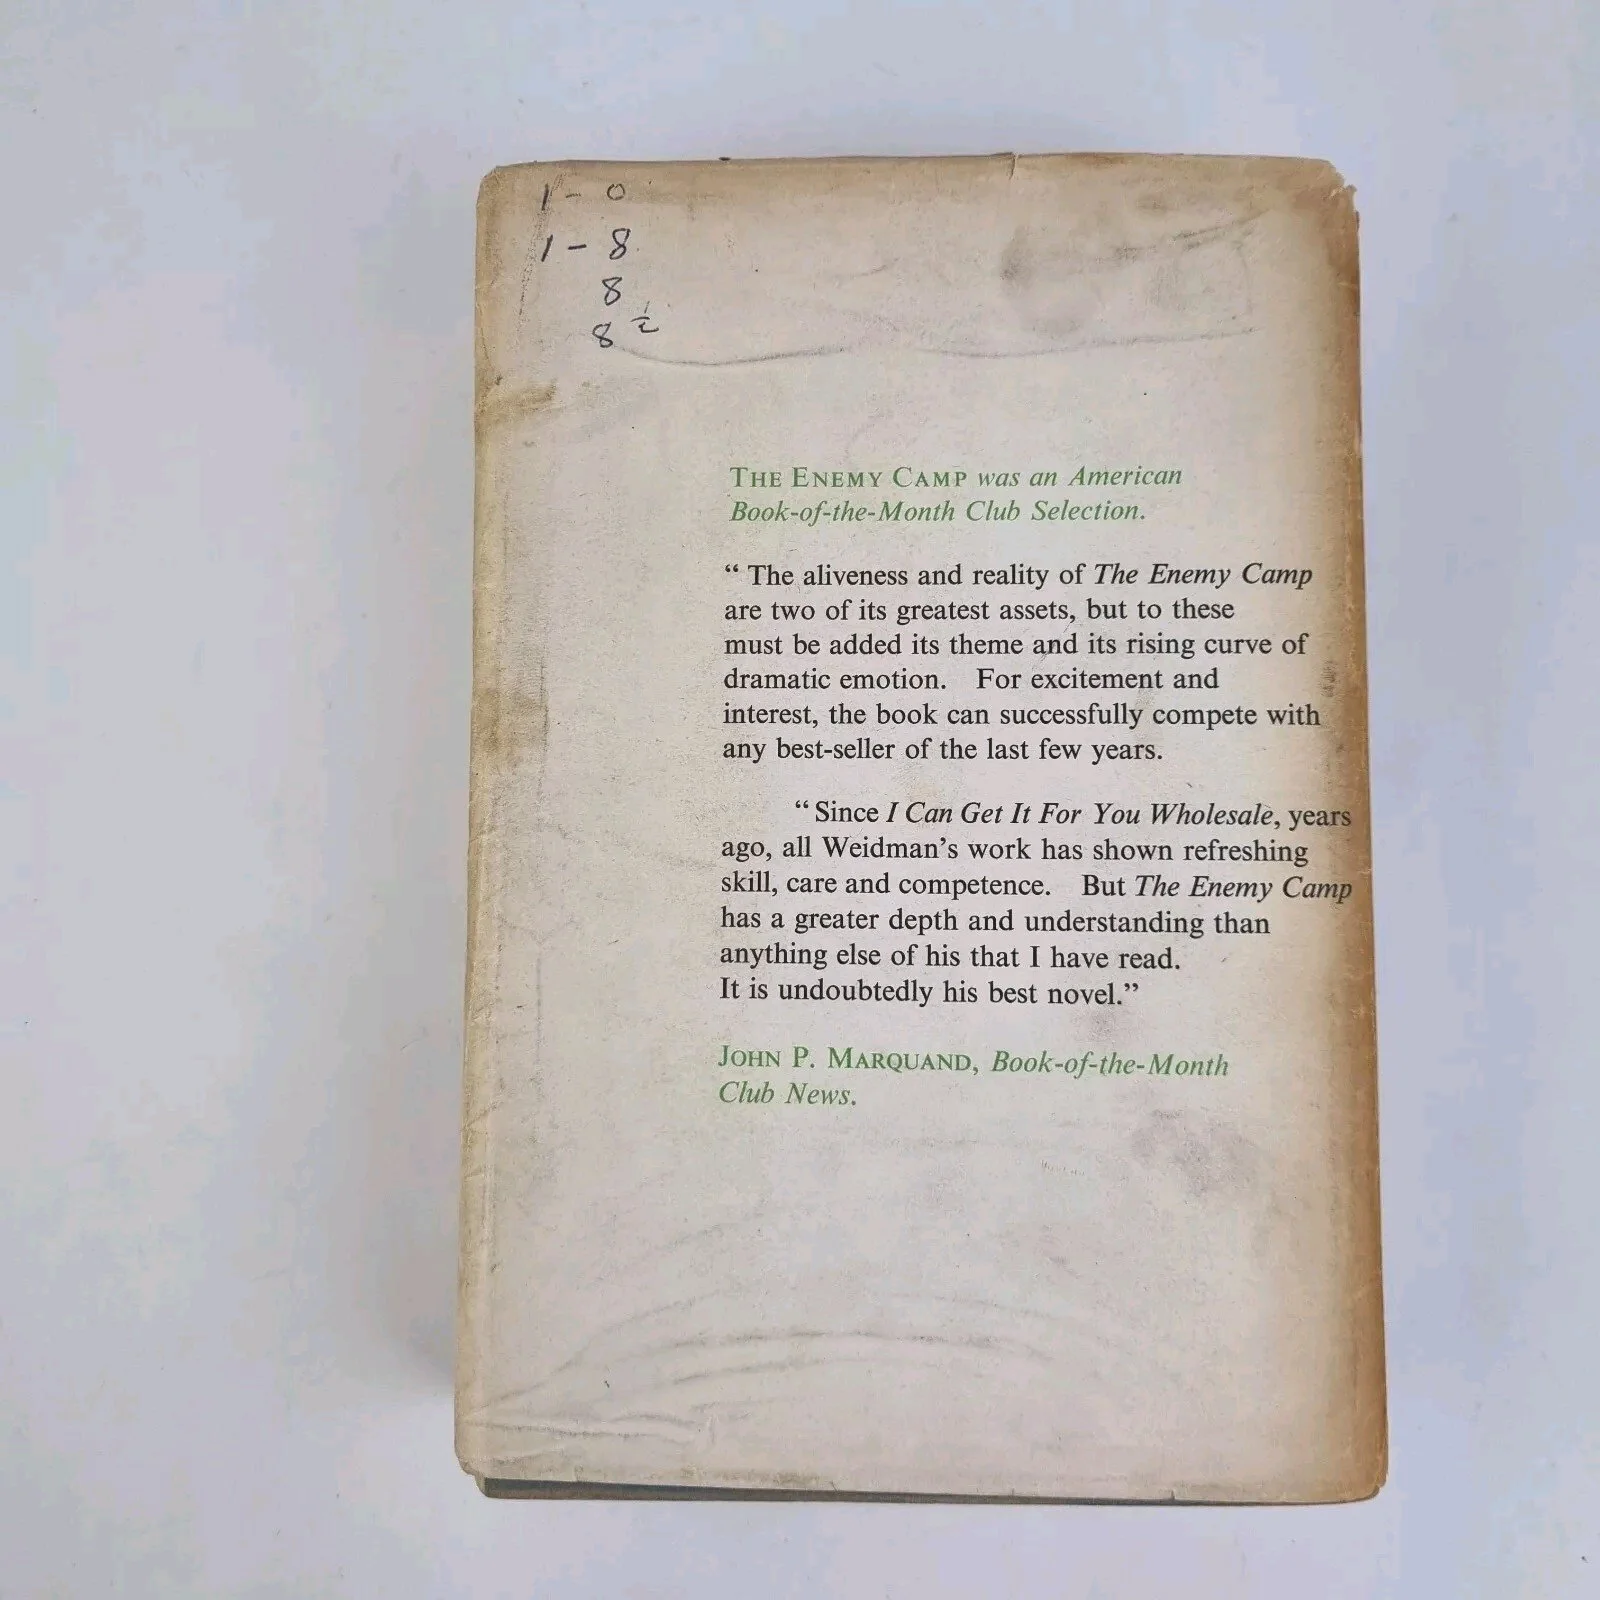 1 - 0
1 - 8
8
8 ½
THE ENEMY CAMP was an American
Book-of-the-Month Club Selection.
“ The aliveness and reality of The Enemy Camp
are two of its greatest assets, but to these
must be added its theme and its rising curve of
dramatic emotion. For excitement and
interest, the book can successfully compete with
any best-seller of the last few years.
“ Since I Can Get It For You Wholesale, years
ago, all Weidman’s work has shown refreshing
skill, care and competence. But The Enemy Camp
has a greater depth and understanding than
anything else of his that I have read.
It is undoubtedly his best novel.”
JOHN P. MARQUAND, Book-of-the-Month
Club News.